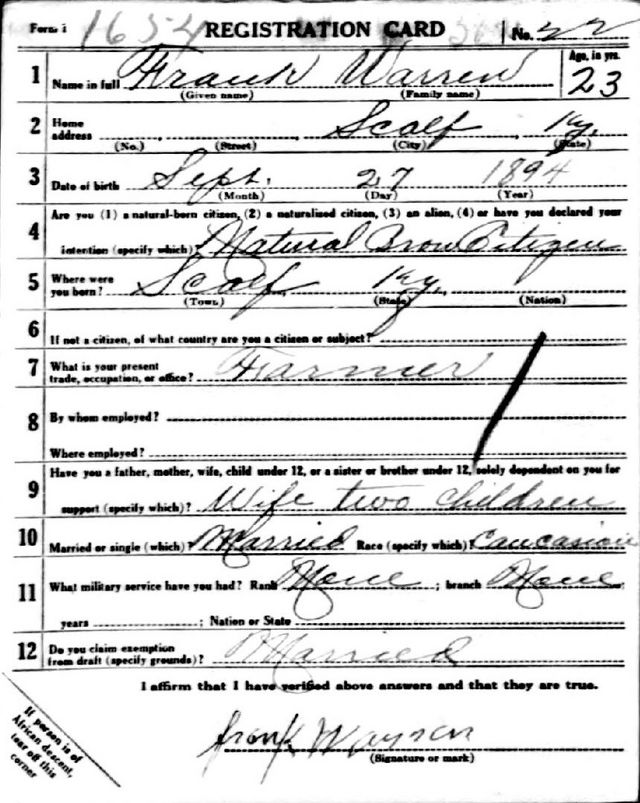 Form 1 1654 REGISTRATION CARD No. 22
1 Name in full Frank Warren Age, in yrs.
(Given name) (Family name) 23
2 Home address Scalf Ky.
(No.) (Street) (City) (State)
3 Date of birth Sept. 27 1894
(Month) (Day) (Year)
4 Are you (1) a natural-born citizen, (2) a naturalized citizen, (3) an alien, (4) or have you declared your
intention (specify which)? Natural Bron Citizen
5 Where were you born? Scalf Ky.
(Town) (State) (Nation)
6 If not a citizen, of what country are you a citizen or subject?
7 What is your present trade, occupation, or office? Farmer
8 By whom employed?
Where employed?
9 Have you a father, mother, wife, child under 12, or a sister or brother under 12, solely dependent on you for
support (specify which)? Wife two children
10 Married or single (which)? Married Race (specify which)? Caucasion
11 What military service have you had? Rank None ; branch None
years ; Nation or State
12 Do you claim exemption from draft (specify grounds)? Married
I affirm that I have verified above answers and that they are true.
frank Waynen
(Signature or mark)
If person is of
African descent,
tear off this
corner